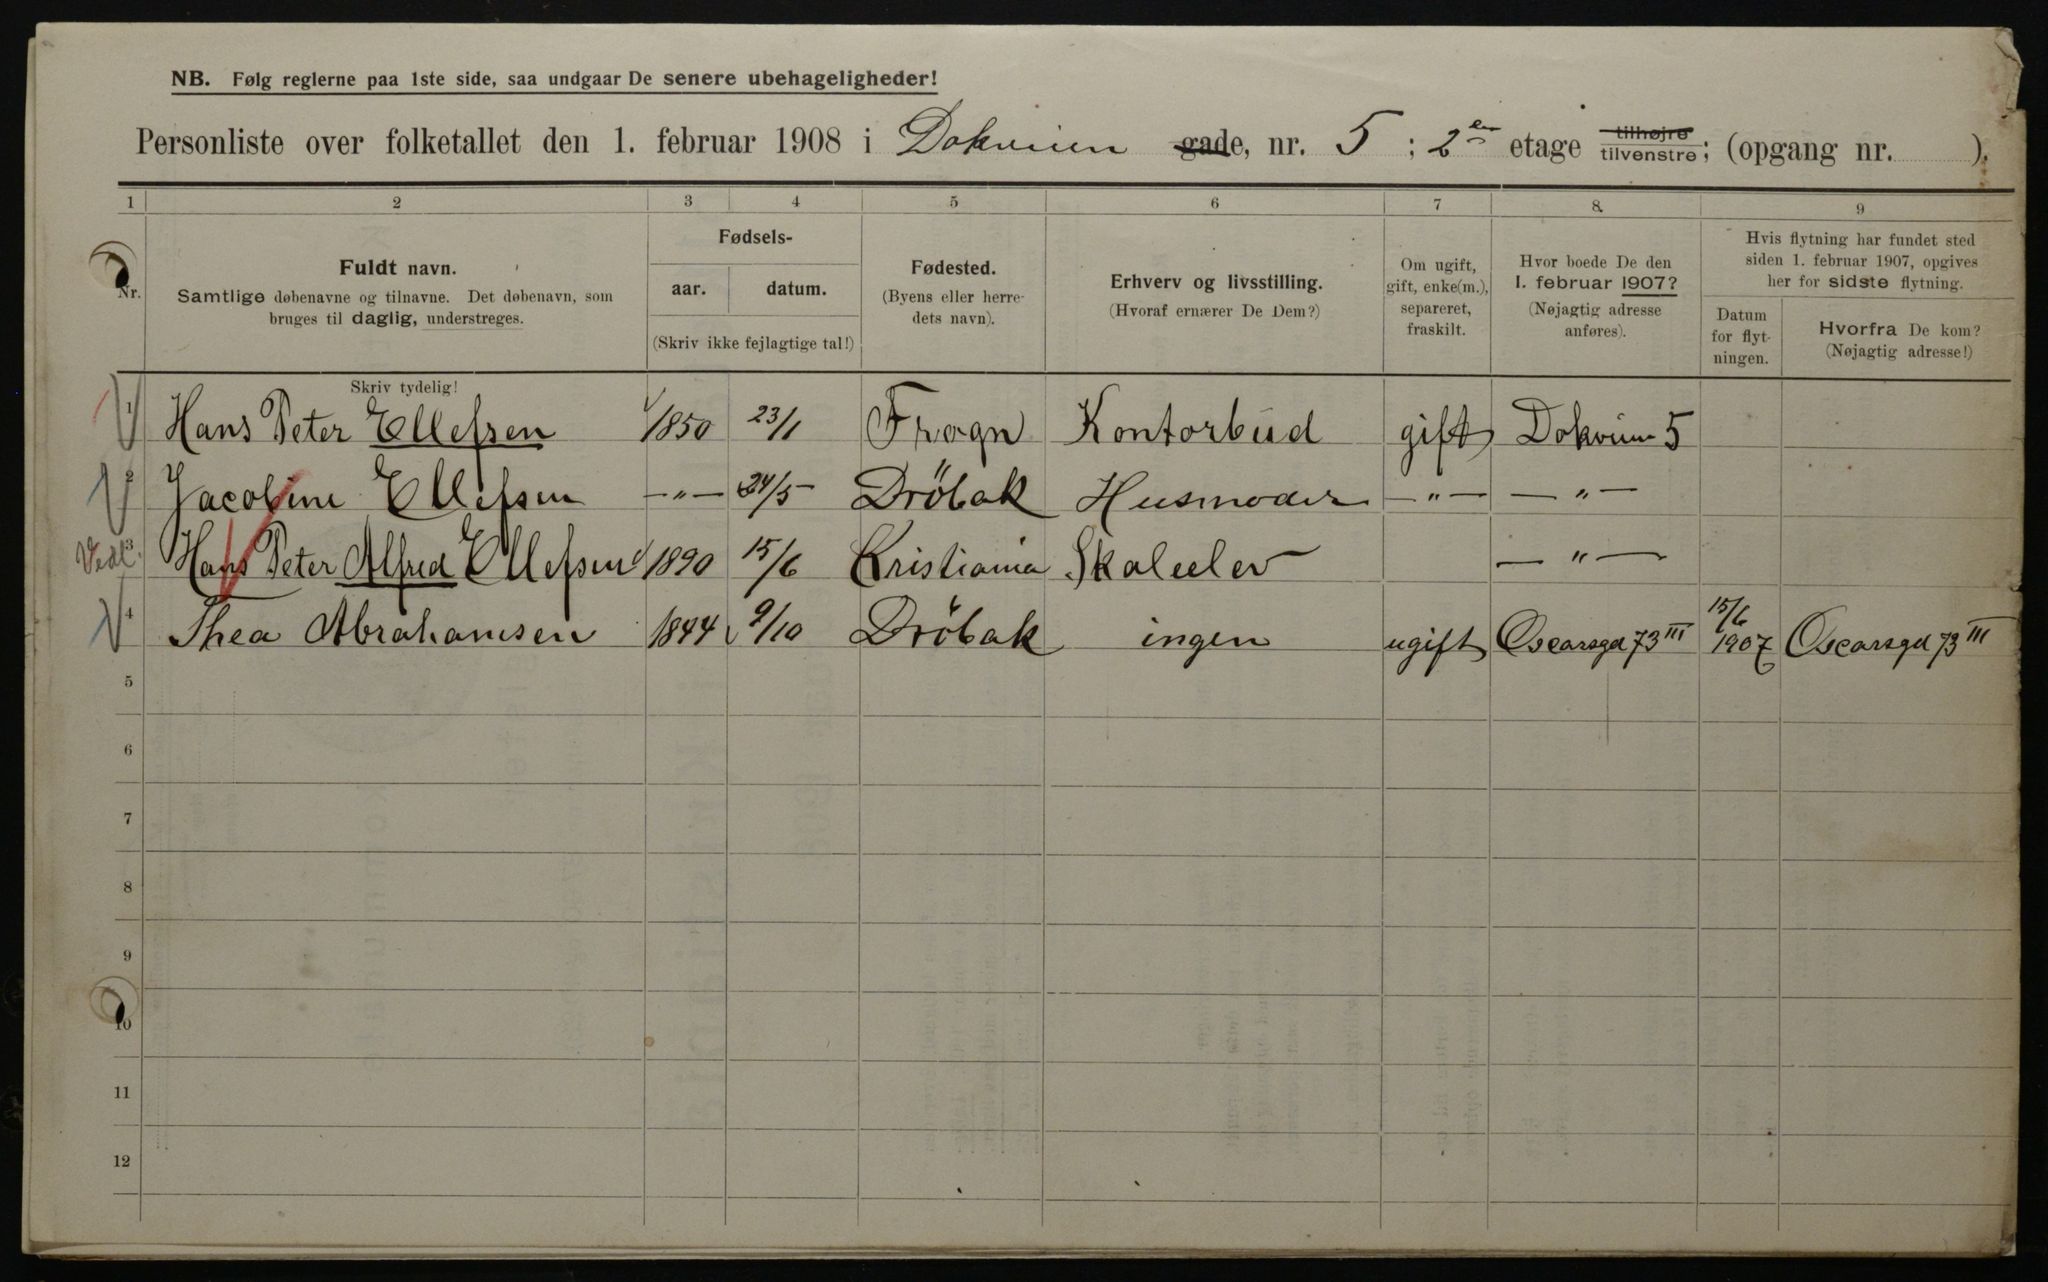 NB. Følg reglerne paa 1ste side, saa undgaar De senere ubehageligheder!
Personliste over folketallet den 1. februar 1908 i Dokveien gade, nr. 5 ; 2en etage tilhøjre tilvenstre; (opgang nr. ).
1 2 3 4 5 6 7 8. 9
Nr.
Fuldt navn.
Samtlige døbenavne og tilnavne. Det døbenavn, som
bruges til daglig, understreges.
Skriv tydelig!
Fødsels-
aar. datum.
(Skriv ikke fejlagtige tal!)
Fødested.
(Byens eller herre-
dets navn).
Erhverv og livsstilling.
(Hvoraf ernærer De Dem?)
Om ugift,
gift, enke(m.),
separeret,
fraskilt.
Hvor boede De den
1. februar 1907?
(Nøjagtig adresse
anføres).
Hvis flytning har fundet sted
siden 1. februar 1907, opgives
her for sidste flytning.
Datum
for flyt-
ningen.
Hvorfra De kom?
(Nøjagtig adresse!)
1 Hans Peter Ellefsen 1850 23/1 Frogn Kontorbud gift Dokveien 5
2 Jacobine Ellefsen —"— 24/5 Dröbak Husmoder —"— —"—
Vedl. 3 Hans Peter Alfred Ellefsen 1890 15/6 Kristiania Skoleelev —"—
4 Thea Abrahamsen 1844 9/10 Dröbak ingen ugift Oscarsgd 73 III 15/6 1907 Oscarsgd 73 III
5
6
7
8
9
10
11
12